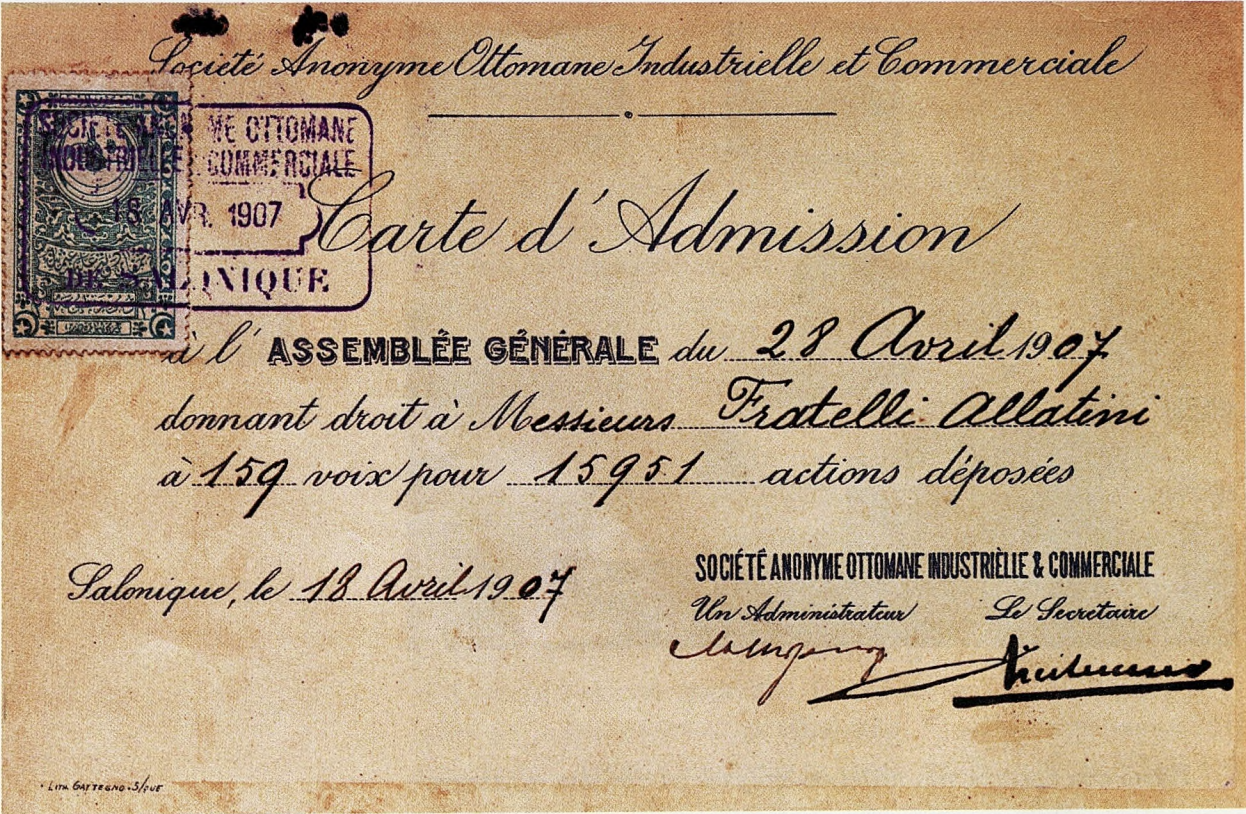 Société Anonyme Ottomane Industrielle et Commerciale
SOCIETE ANONYME OTTOMANE
INDUSTRIELLE & COMMERCIALE
18 AVR. 1907
DE SALONIQUE
Carte d'Admission
à l'ASSEMBLÉE GÉNÉRALE du 28 Avril 1907
donnant droit à Messieurs Fratelli Allatini
à 159 voix pour 15951 actions déposées
Salonique, le 18 Avril 1907
SOCIÉTÉ ANONYME OTTOMANE INDUSTRIÈLLE & COMMERCIALE
Un Administrateur Le Secrétaire
LITH. GATTEGNO. S/QUE